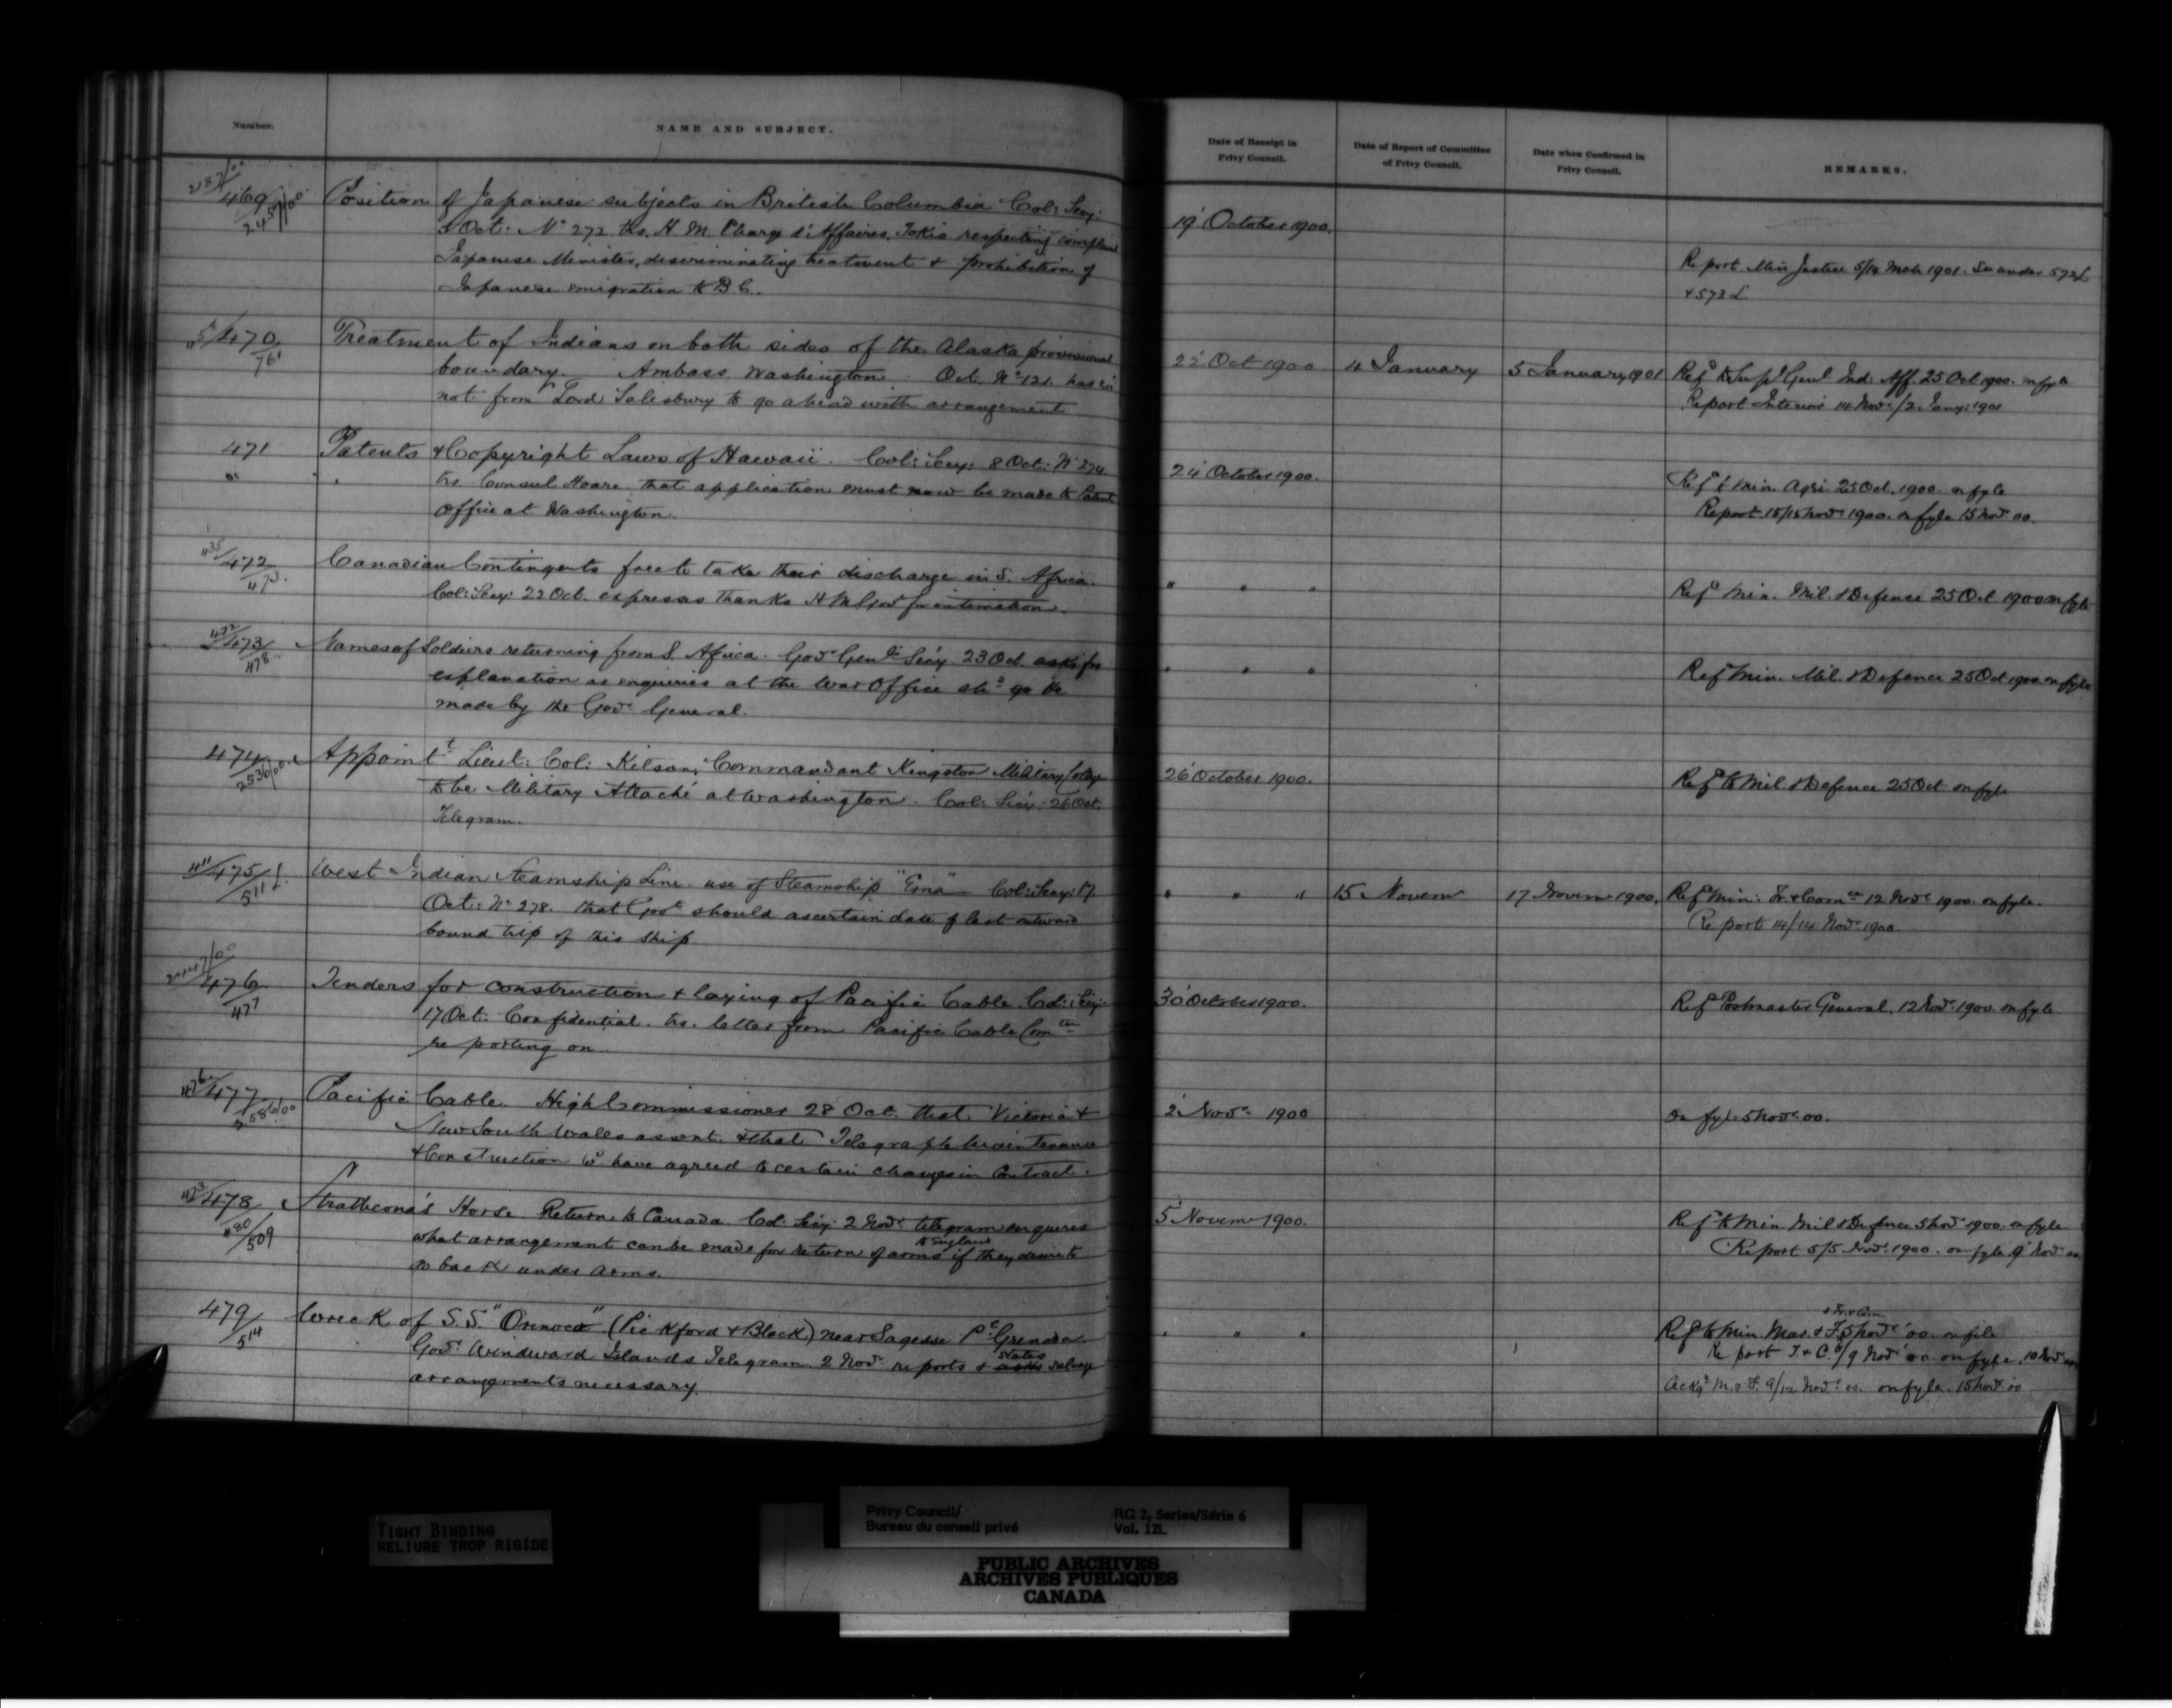 Number.
NAME AND SUBJECT.
Date of Receipt in
Privy Council.
Date of Report of Committee
of Privy Council.
Date when Confirmed in
Privy Council.
REMARKS.
469
2457/00
Position of Japanese subjects in British Columbia Col: Secy:
Oct: No 272 trs. H. M. Charge d'Affaires, Tokio respecting complaint
Japanese Minister, discriminating treatment & prohibition of
Japanese emigration to B C.
19 October 1900.
Report Min Justice 5/14 Mch 1901. See under 572 L
& 573 L
470
761
Treatment of Indians on both sides of the Alaska provisional
boundary. Ambass. Washington Oct. No 121. has
not from Lord Salisbury to go ahead with arrangement
22 Oct 1900
4 January
5 January 1901
Refd to Supt Genl Ind: Aff. 25 Oct 1900. on fyle
Report Interior 14 Novr /2 Jany: 1901
471
Patents & Copyright Laws of Hawaii. Col: Secy: 8 Oct: No 274
trs Consul Hoare that application must now be made to Patent
Office at Washington.
24 October 1900.
Refd to Min. Agri. 25 Oct. 1900. on fyle
Report 15/15 Novr 1900. on fyle 15 Novr 00.
435/472
473.
Canadian Contingents free to take their discharge in S. Africa.
Col: Secy: 22 Oct. expresses thanks H M Govt for intimation.
" " "
Refd Min. Mil. & Defence 25 Oct 1900 on fyle
472/473
478
Names of Soldiers returning from S. Africa. Govr Genl's Secy 23 Oct. asks for
explanation as enquiries at the War Office shd go to
made by the Govr General.
" " "
Refd Min. Mil. & Defence 25 Oct 1900 on fyle
474
2536/00
Appointt Lieut: Col: Kitson, Commandant Kingston Military College
to be Military Attaché at Washington. Col: Secy. 26 Oct.
Telegram.
26 October 1900.
Refd to Mil. & Defence 25 Oct on fyle
411/475
511 L.
West Indian Steamship Line. use of Steamship "Erna" Col: Secy: 17
Oct: No 278. that Govt should ascertain date of last outward
bound trip of this ship
" " "
15 Novem
17 Novem 1900.
Refd Min: Tr. & Comce 12 Novr 1900. on fyle.
Report 14/14 Novr 1900.
2447/00
476
477
Tenders for construction & laying of Pacific Cable. Col: Secy:
17 Oct. Confidential. trs. letter from Pacific Cable Comtee
reporting on
30 October 1900.
Refd Postmaster General. 12 Novr 1900. on fyle
476/477
2586/00
Pacific Cable. High Commissioner 28 Oct. that Victoria &
New South Wales assent & that Telegraph Maintenance
& Construction Co have agreed to certain changes in Contract.
2 Novr 1900
On fyle 5 Novr 00.
473/478
480/509
Strathcona's Horse. Return to Canada. Col: Secy: 2 Novr telegram enquires
what arrangement can be made for return of arms to England if they desire to
go back under arms.
5 Novem 1900.
Refd to Min. Mil & Defence 5 Novr 1900. on fyle
Report 5/5 Novr 1900. on fyle 9 Novr 00
479
514
Wreck of S.S. "Orinoco" (Pickford & Black) near Sagesse Pt Grenada
Govr Windward Islands Telegram 2 Novr reports & asks states salvage
arrangements necessary.
" " "
& Tr. & Com.
Refd to Min. Mar. & F. 5 Novr 00. on file
Report T & C. /9 Novr 00. on fyle. 10 Novr 00
Ackgd M. & F. 9/12 Novr 00. on fyle. 15 Novr 00
TIGHT BINDING
RELIURE TROP RIGIDE
Privy Council/
Bureau du conseil privé
RG 2, Series/Série 6
Vol. 121.
PUBLIC ARCHIVES
ARCHIVES PUBLIQUES
CANADA